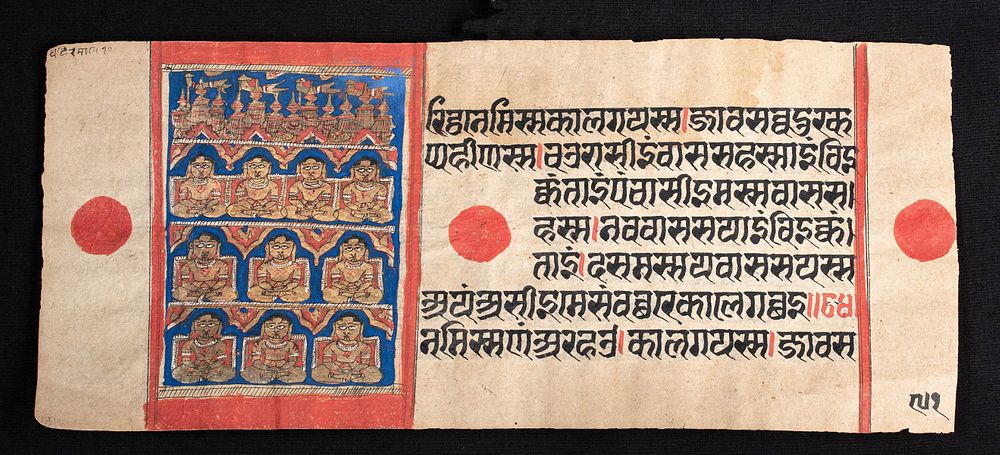 रिट्ठनेमिस्सकालगयस्स।जावसव्वदुरक
प्पहीणस्स।चउरासीइंवाससहस्साइंविइ
क्कंताइंपंचासीइमस्सवासस।
हस्स।नववाससयाइंविइक्कं।
ताइं।दसमस्सयवाससयस्स
अयंअसीइमेसंवच्छरेकालेगच्छइ॥
नमिस्सणंअरहउ।कालगयस्स।जावस